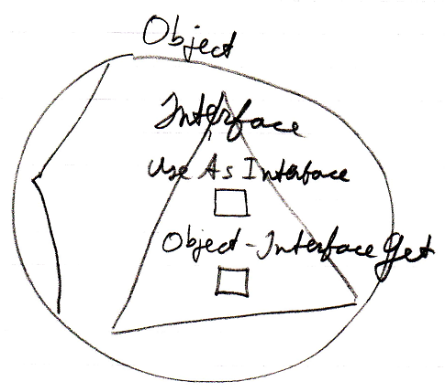 Object
Interface
Use As Interface
Object-Interface Get